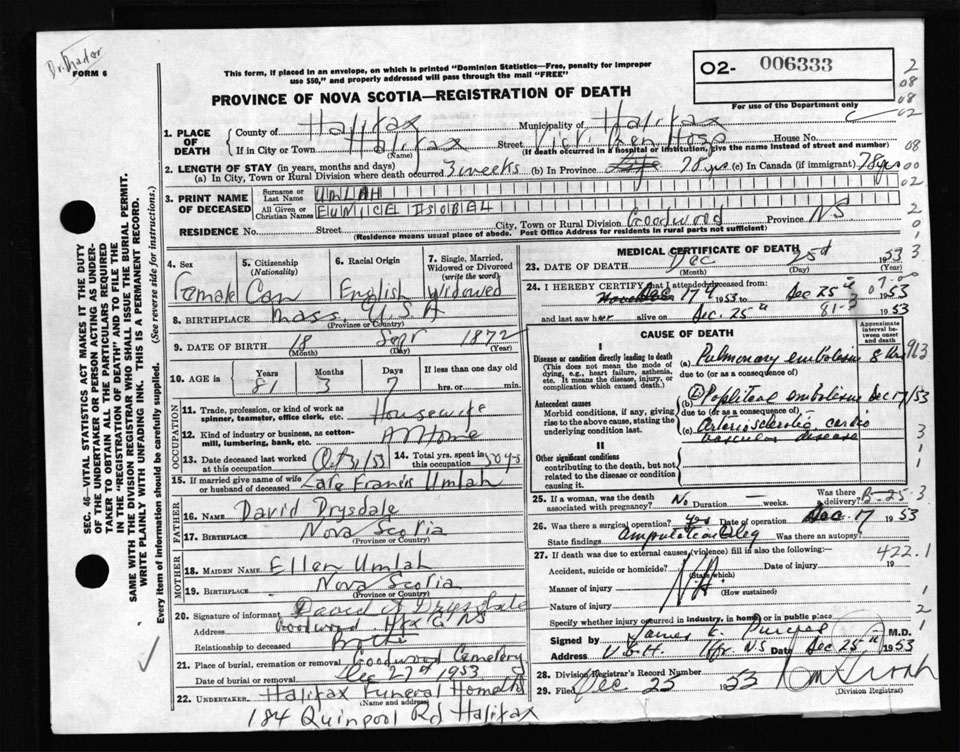 Dr. Shader
FORM 6
This form, if placed in an envelope, on which is printed "Dominion Statistics—Free, penalty for improper
use $50," and properly addressed will pass through the mail "FREE"
02- 006333
For use of the Department only
PROVINCE OF NOVA SCOTIA—REGISTRATION OF DEATH
1. PLACE OF DEATH County of Halifax Municipality of Halifax
If in City or Town Halifax (Name) Street Vict Gen Hosp House No.
(If death occurred in a hospital or institution, give the name instead of street and number)
2. LENGTH OF STAY (in years, months and days)
(a) In City, Town or Rural Division where death occurred 3 weeks (b) In Province Life 78 yrs (c) In Canada (if immigrant) 78 yrs
3. PRINT NAME OF DECEASED Surname or Last Name UMLAH
All Given or Christian Names EUNICE ISOBEL
RESIDENCE No. Street City, Town or Rural Division Goodwood Province NS
(Residence means usual place of abode. Post Office Address for residents in rural parts not sufficient)
4. Sex Female
5. Citizenship (Nationality) Can
6. Racial Origin English
7. Single, Married, Widowed or Divorced (write the word) Widowed
8. BIRTHPLACE Mass. U.S.A
(Province or Country)
9. DATE OF BIRTH 18 Sept 1872
(Month) (Day) (Year)
10. AGE in Years Months Days If less than one day old
81 3 7 hrs. or min.
OCCUPATION
11. Trade, profession, or kind of work as spinner, teamster, office clerk, etc. Housewife
12. Kind of industry or business, as cotton-mill, lumbering, bank, etc. At Home
13. Date deceased last worked at this occupation Oct 31/53 14. Total yrs. spent in this occupation 50 yrs
15. If married give name of wife or husband of deceased Late Francis Umlah
FATHER
16. NAME David Drysdale
17. BIRTHPLACE Nova Scotia
(Province or Country)
MOTHER
18. MAIDEN NAME Ellen Umlah
19. BIRTHPLACE Nova Scotia
(Province or Country)
20. Signature of informant David A Drysdale
Address Goodwood Hfx Co NS
Relationship to deceased Brother
21. Place of burial, cremation or removal Goodwood Cemetery
Date of burial or removal Dec 27th 1953
22. UNDERTAKER Halifax Funeral Home Ltd
(Name and address)
184 Quinpool Rd Halifax
MEDICAL CERTIFICATE OF DEATH
23. DATE OF DEATH Dec 25th 1953
(Month) (Day) (Year)
24. I HEREBY CERTIFY that I attended deceased from
Dec 17th 1953 to Dec 25th 1953
and last saw her alive on Dec. 25th 81-3 1953
CAUSE OF DEATH
Approximate interval between onset and death
I
Disease or condition directly leading to death
(This does not mean the mode of dying, e.g., heart failure, asthenia, etc. It means the disease, injury, or complication which caused death.)
(a) Pulmonary embolism 8 hrs
due to (or as a consequence of)
Antecedent causes
Morbid conditions, if any, giving rise to the above cause, stating the underlying condition last.
(b) Popliteal embolism Dec 17/53
due to (or as a consequence of)
(c) Arteriosclerotic cardio vascular disease
II
Other significant conditions contributing to the death, but not related to the disease or condition causing it.
25. If a woman, was the death associated with pregnancy? No Duration — weeks. Was there delivery? B-25-3
26. Was there a surgical operation? yes Date of operation Dec. 17 1953
State findings Amputation leg Was there an autopsy?
27. If death was due to external causes (violence) fill in also the following:— 422.1
Accident, suicide or homicide? Date of injury 19
(State which)
Manner of injury N.A.
(How sustained)
Nature of injury
Specify whether injury occurred in industry, in home or in public place
Signed by James E. M.D.
Address V.G.H. Hfx N.S Date Dec 25th 1953
28. Division Registrar's Record Number
29. Filed Dec 23 1953
(Division Registrar)
SEC. 46—VITAL STATISTICS ACT MAKES IT THE DUTY
OF THE UNDERTAKER OR PERSON ACTING AS UNDER-
TAKER TO OBTAIN ALL THE PARTICULARS REQUIRED
IN THE "REGISTRATION OF DEATH" AND TO FILE THE
SAME WITH THE DIVISION REGISTRAR WHO SHALL ISSUE THE BURIAL PERMIT.
WRITE PLAINLY WITH UNFADING INK. THIS IS A PERMANENT RECORD.
Every item of information should be carefully supplied. (See reverse side for instructions.)